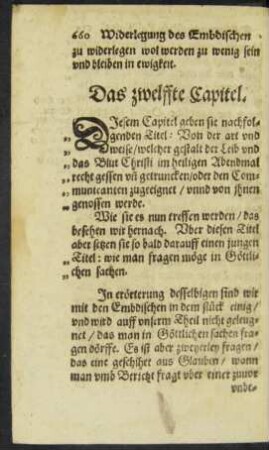 660 Widerlegung des Embdischen
zu widerlegen wol werden zu wenig sein
vnd bleiben in ewigkeit.
Das zwelffte Capitel.
DIesem Capitel geben sie nachfol-
genden Titel: Von der art vnd
weise/welcher gestalt der Leib vnd
das Blut Christi im heiligen Abendmal
recht gessen vñ getruncken/oder den Com-
municanten zugeeignet / vnnd von jhnen
genossen werde.
Wie sie es nun treffen werden / das
besehen wir hernach. Vber diesen Titel
aber setzen sie so bald darauff einen jungen
Titel: wie man fragen möge in Göttli-
chen sachen.
In erörterung desselbigen sind wir
mit den Embdischen in dem stück einig/
vnd wird auff vnserm Theil nicht geleug-
net / das man in Göttlichen sachen fra-
gen dörffe. Es ist aber zweyerley fragen/
das eine geschihet aus Glauben / wann
man vmb Bericht fragt vber einer zuuor
vnbe-